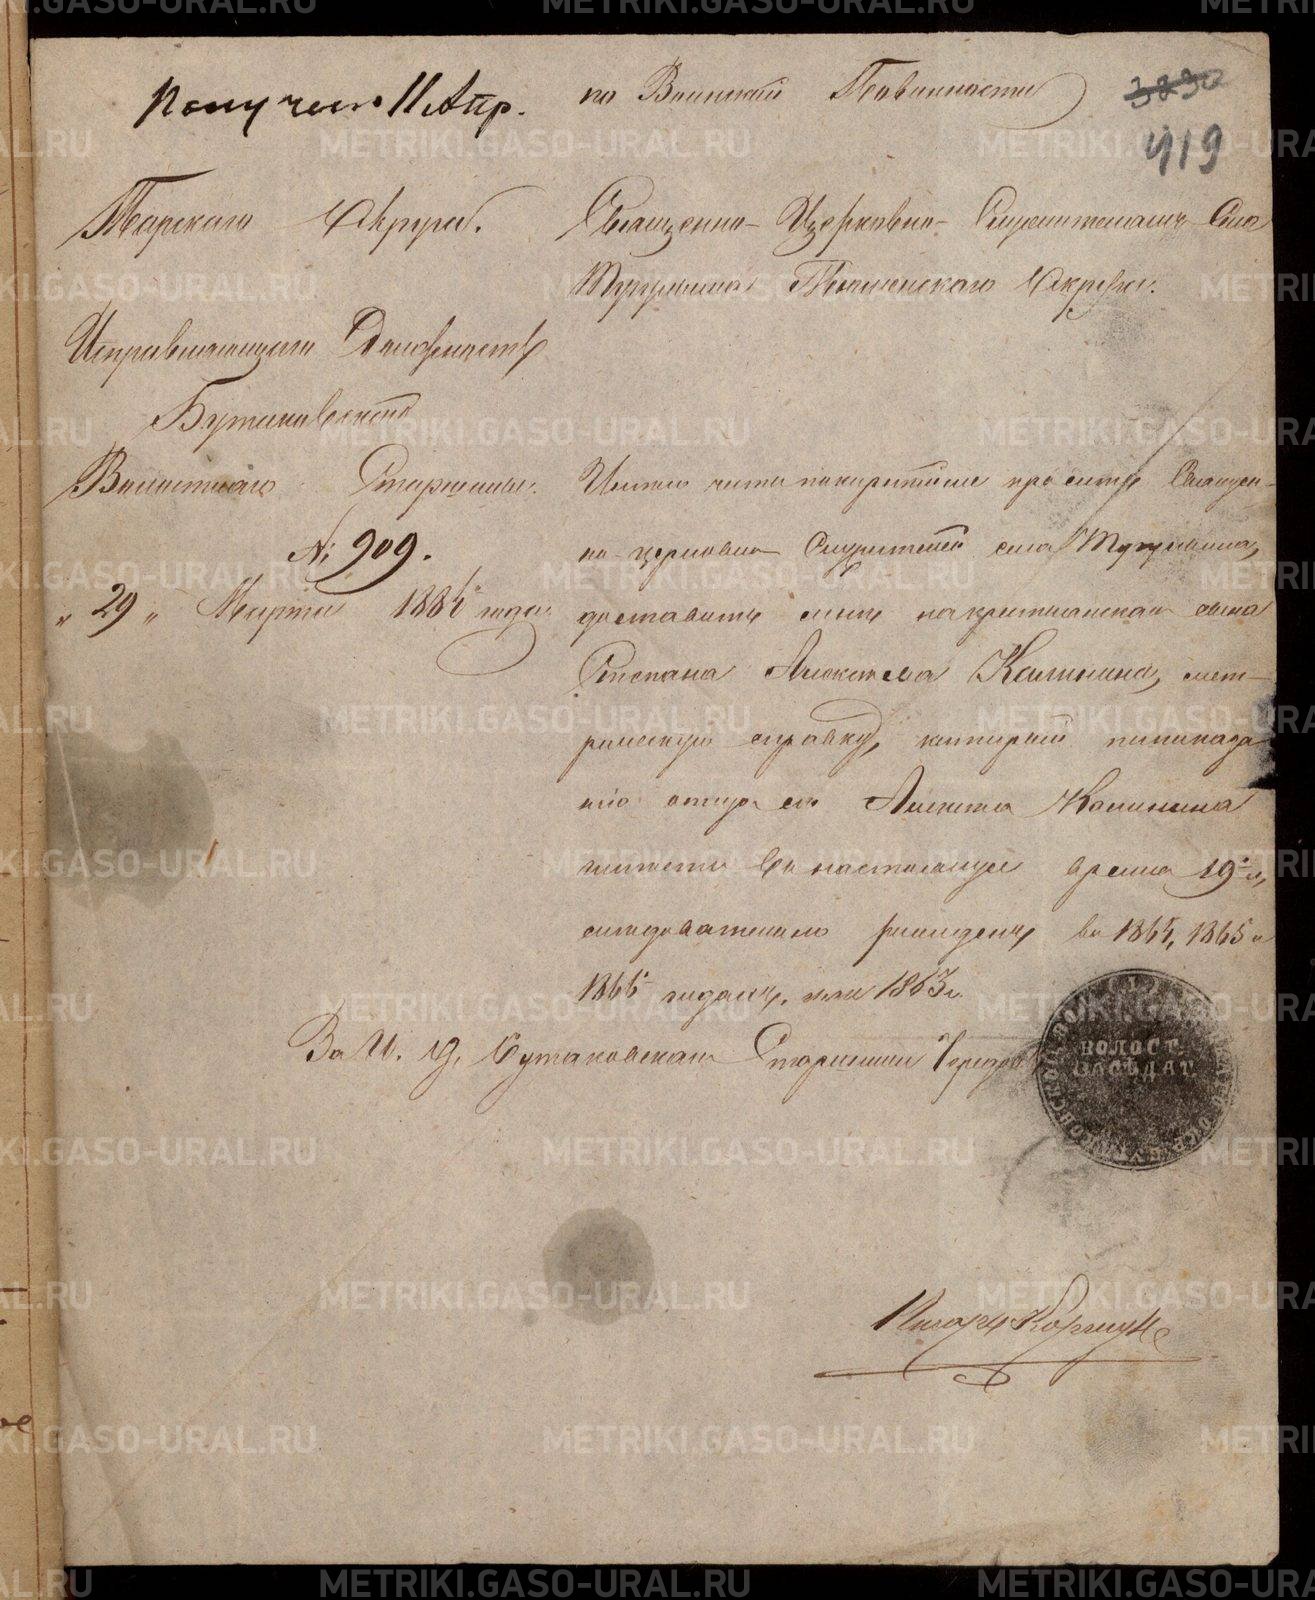 Получено 11 Апр.
по Воинской Повинности
419
Тарскаго Округа.
Исправляющаго Должность
Бутаковскаго
Волостнаго Старшины.
№ 909.
„ 29 „ Марта 1884 года
Священно-Церковно-Служителямъ Села
Тугулыма Тюменскаго Округа.
Имѣю честь покорнѣйше просить Священ-
но-церковно Служителей села Тугулыма,
доставить мнѣ на крестьянскаго сына
Степана Алексѣева Калинина, мет-
рическую справку, который по показа-
нію отца его Алексѣя Калинина
имѣетъ въ настоящее время 19 л,
слѣдовательно рожденъ въ 1864, 1865 и
1866 годахъ, или 1863 г.
За И. д. Бутаковскаго Старшины
ВОЛОСТ.
ЗАСѢДАТ.
Писарь
METRIKI.GASO-URAL.RU